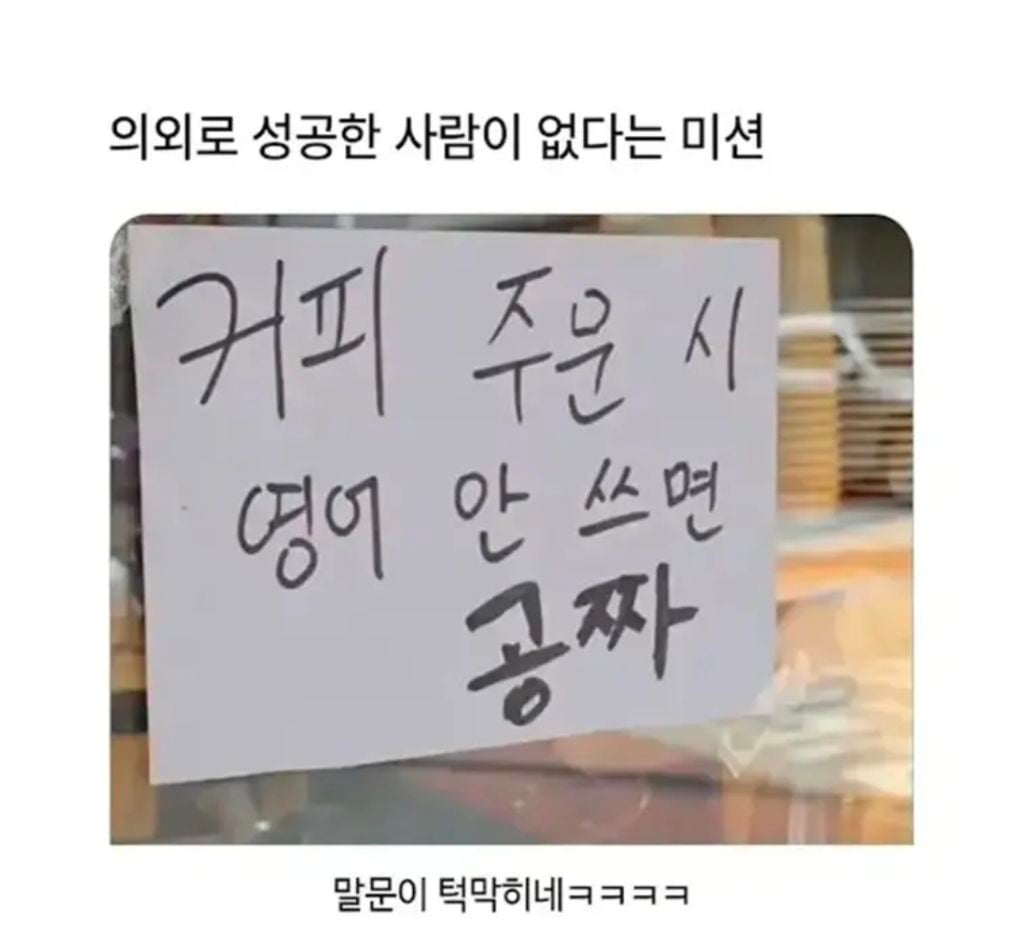 의외로 성공한 사람이 없다는 미션
커피 주문 시
영어 안 쓰면
공짜
말문이 턱막히네ㅋㅋㅋㅋ